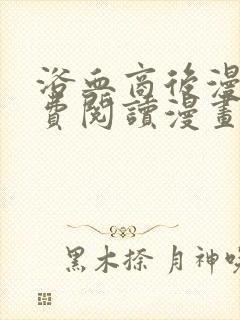 浴血商後漫
費閱讀漫畫
黑木捺 月神咲